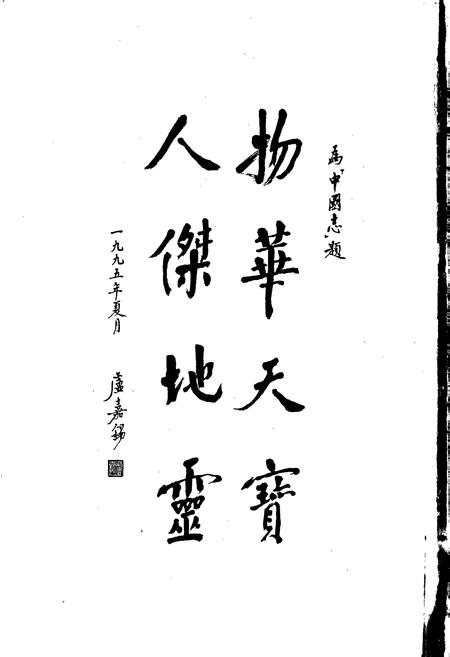 為中國志題
物華天寶
人傑地靈
一九九五年夏月
盧嘉錫